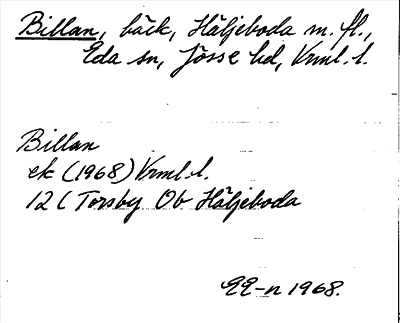 Billan, bäck, Häljeboda m. fl.,
Eda sn, Jösse hd, Vrml. l.
Billan
ek (1968) Vrml. l.
12 C Torsby Ob Häljeboda
EE-n 1968.